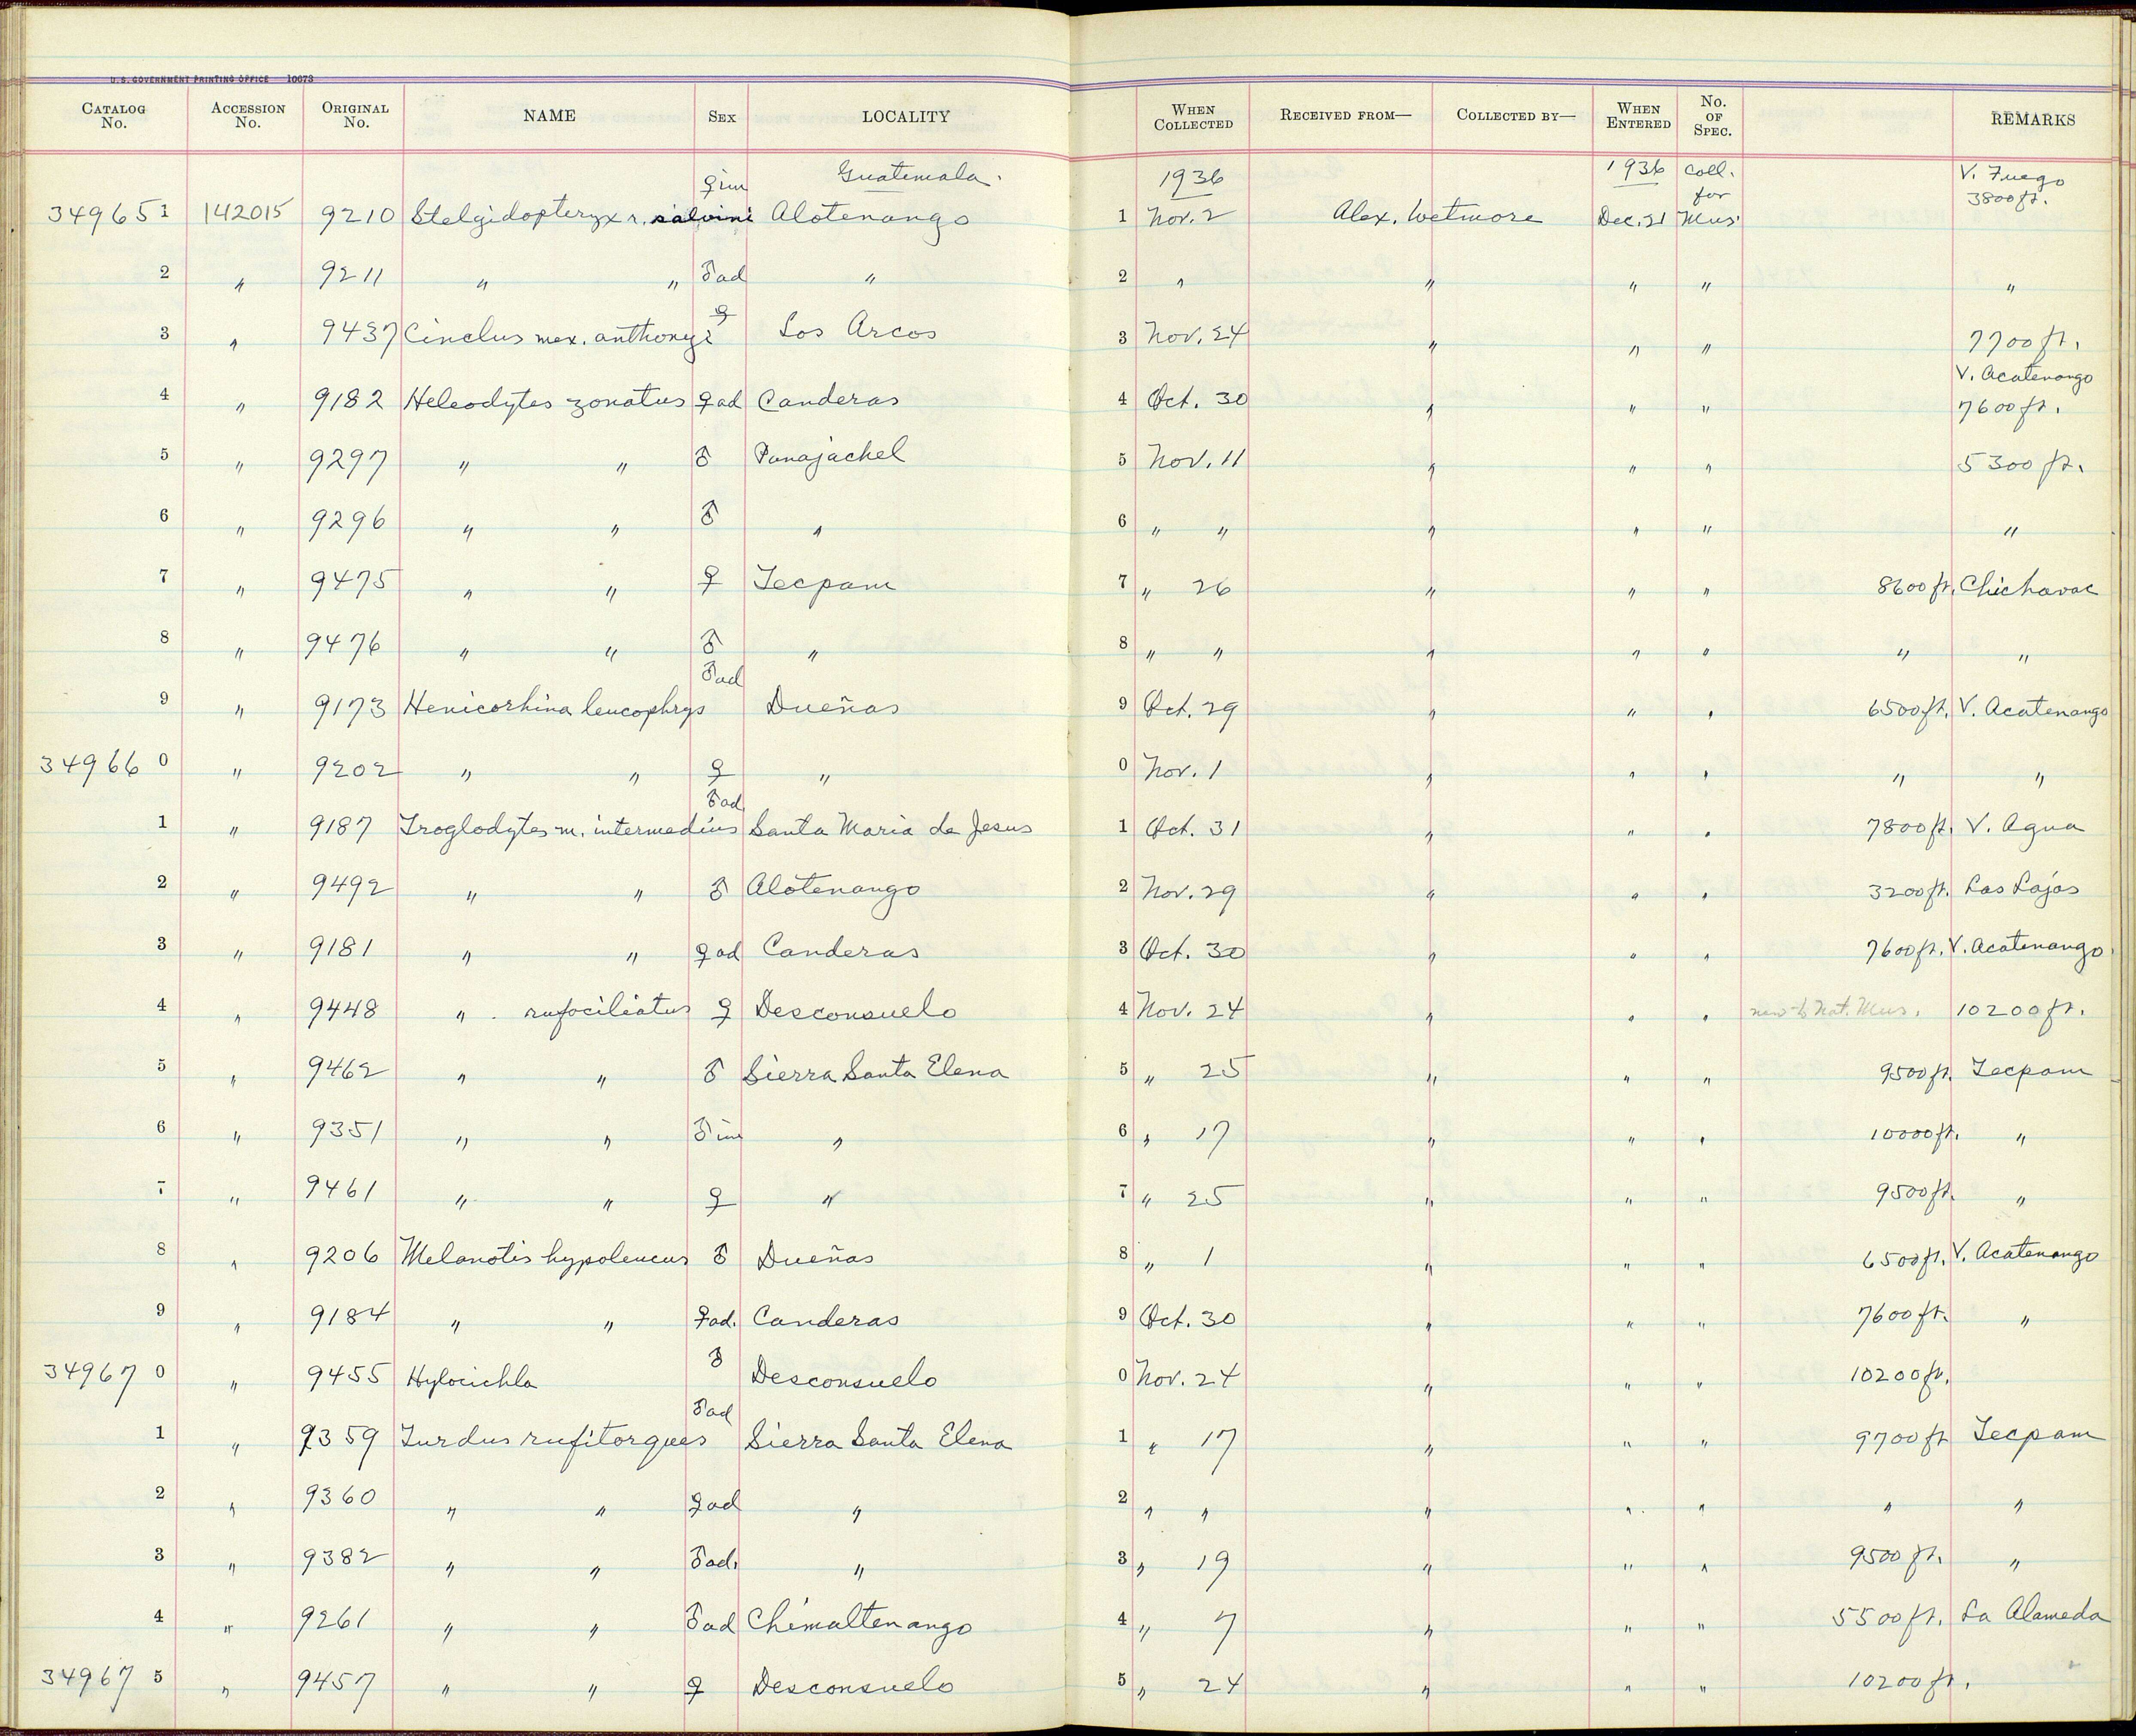 U.S. GOVERNMENT PRINTING OFFICE 10673
CATALOG No. ACCESSION No. ORIGINAL No. NAME SEX LOCALITY WHEN COLLECTED RECEIVED FROM— COLLECTED BY— WHEN ENTERED No. OF SPEC. REMARKS
♀im Guatemala. 1936 1936 Coll. V. Fuego
349651 142015 9210 Stelgidopteryx r. salvini Alotenango 1 Nov. 2 Alex. Wetmore Dec. 21 for Mus. 3800 ft.
2 " 9211 " " ♂ad " 2 " " " " "
3 " 9437 Cinclus mex. anthonyi ♀ Los Arcos 3 Nov. 24 " " " 7700 ft.
4 " 9182 Heleodytes zonatus ♀ad Canderas 4 Oct. 30 " " " V. Acatenango 7600 ft.
5 " 9297 " " ♂ Panajachel 5 Nov. 11 " " " 5300 ft.
6 " 9296 " " ♂ " 6 " " " " " "
7 " 9475 " " ♀ Tecpam 7 " 26 " " " 8600 ft. Chichavac
8 " 9476 " " ♂ " 8 " " " " " " "
9 " 9173 Henicorhina leucophrys ♂ad Dueñas 9 Oct. 29 " " " 6500 ft. V. Acatenango
349660 " 9202 " " ♀ " 0 Nov. 1 " " " " "
1 " 9187 Troglodytes m. intermedius ♂ad Santa Maria de Jesus 1 Oct. 31 " " " 7800 ft. V. Agua
2 " 9492 " " ♂ Alotenango 2 Nov. 29 " " " 3200 ft. Las Lajas
3 " 9181 " " ♀ad Canderas 3 Oct. 30 " " " 7600 ft. V. Acatenango
4 " 9448 " rufociliatus ♀ Desconsuelo 4 Nov. 24 " " " new to Nat. Mus. 10200 ft.
5 " 9462 " " ♂ Sierra Santa Elena 5 " 25 " " " 9500 ft. Tecpam
6 " 9351 " " ♂im " 6 " 17 " " " 10000 ft. "
7 " 9461 " " ♀ " 7 " 25 " " " 9500 ft. "
8 " 9206 Melanotis hypoleucus ♂ Dueñas 8 " 1 " " " 6500 ft. V. Acatenango
9 " 9184 " " ♀ad. Canderas 9 Oct. 30 " " " 7600 ft. "
349670 " 9455 Hylocichla ♂ Desconsuelo 0 Nov. 24 " " " 10200 ft.
1 " 9359 Turdus rufitorques ♂ad Sierra Santa Elena 1 " 17 " " " 9700 ft Tecpam
2 " 9360 " " ♀ad " 2 " " " " " " "
3 " 9382 " " ♂ad. " 3 " 19 " " " 9500 ft. "
4 " 9261 " " ♂ad Chimaltenango 4 " 7 " " " 5500 ft. La Alameda
349675 " 9457 " " ♀ Desconsuelo 5 " 24 " " " 10200 ft.